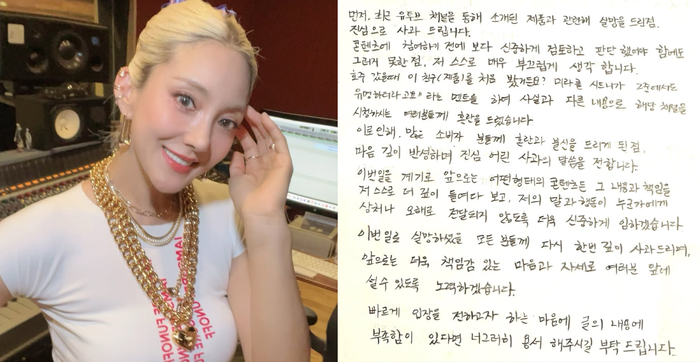 먼저, 최근 유튜브 채널을 통해 소개된 제품과 관련해 실망을 드린점.
진심으로 사과 드립니다.
콘텐츠에 참여하기 전에 보다 신중하게 검토하고 판단 했어야 함에도
그러지 못한 점, 저 스스로 매우 부끄럽게 생각 합니다.
호주 갔을때 이 친구(제품)를 처음 봤거든요? 미라클 시드니가 2층에서도
유명하더라고요" 라는 멘트를 하며 사실과 다른 내용으로 해당 채널을
시청하시는 여러분들께 혼란을 드렸습니다
이로 인해, 많은 소비자 분들께 혼란과 불신을 드리게 된점,
마음 깊이 반성하며 진심 어린 사과의 말씀을 전합니다.
이번일을 계기로 앞으로는 어떤형태의 콘텐츠든 그 내용과 책임을
저 스스로 더 깊이 들여다 보고, 저의 말과 행동이 누군가에게
상처나 오해로 전달되지 않도록 더욱 신중하게 임하겠습니다
이번일로 실망하셨을 모든 분들께 다시 한번 깊이 사과드리며,
앞으로는 더욱 책임감 있는 마음과 자세로 여러분 앞에
설수 있도록 노력하겠습니다.
빠르게 입장을 전하고자 하는 마음에 글의 내용에
부족함이 있다면 너그러히 용서 해주시길 부탁 드립니다.